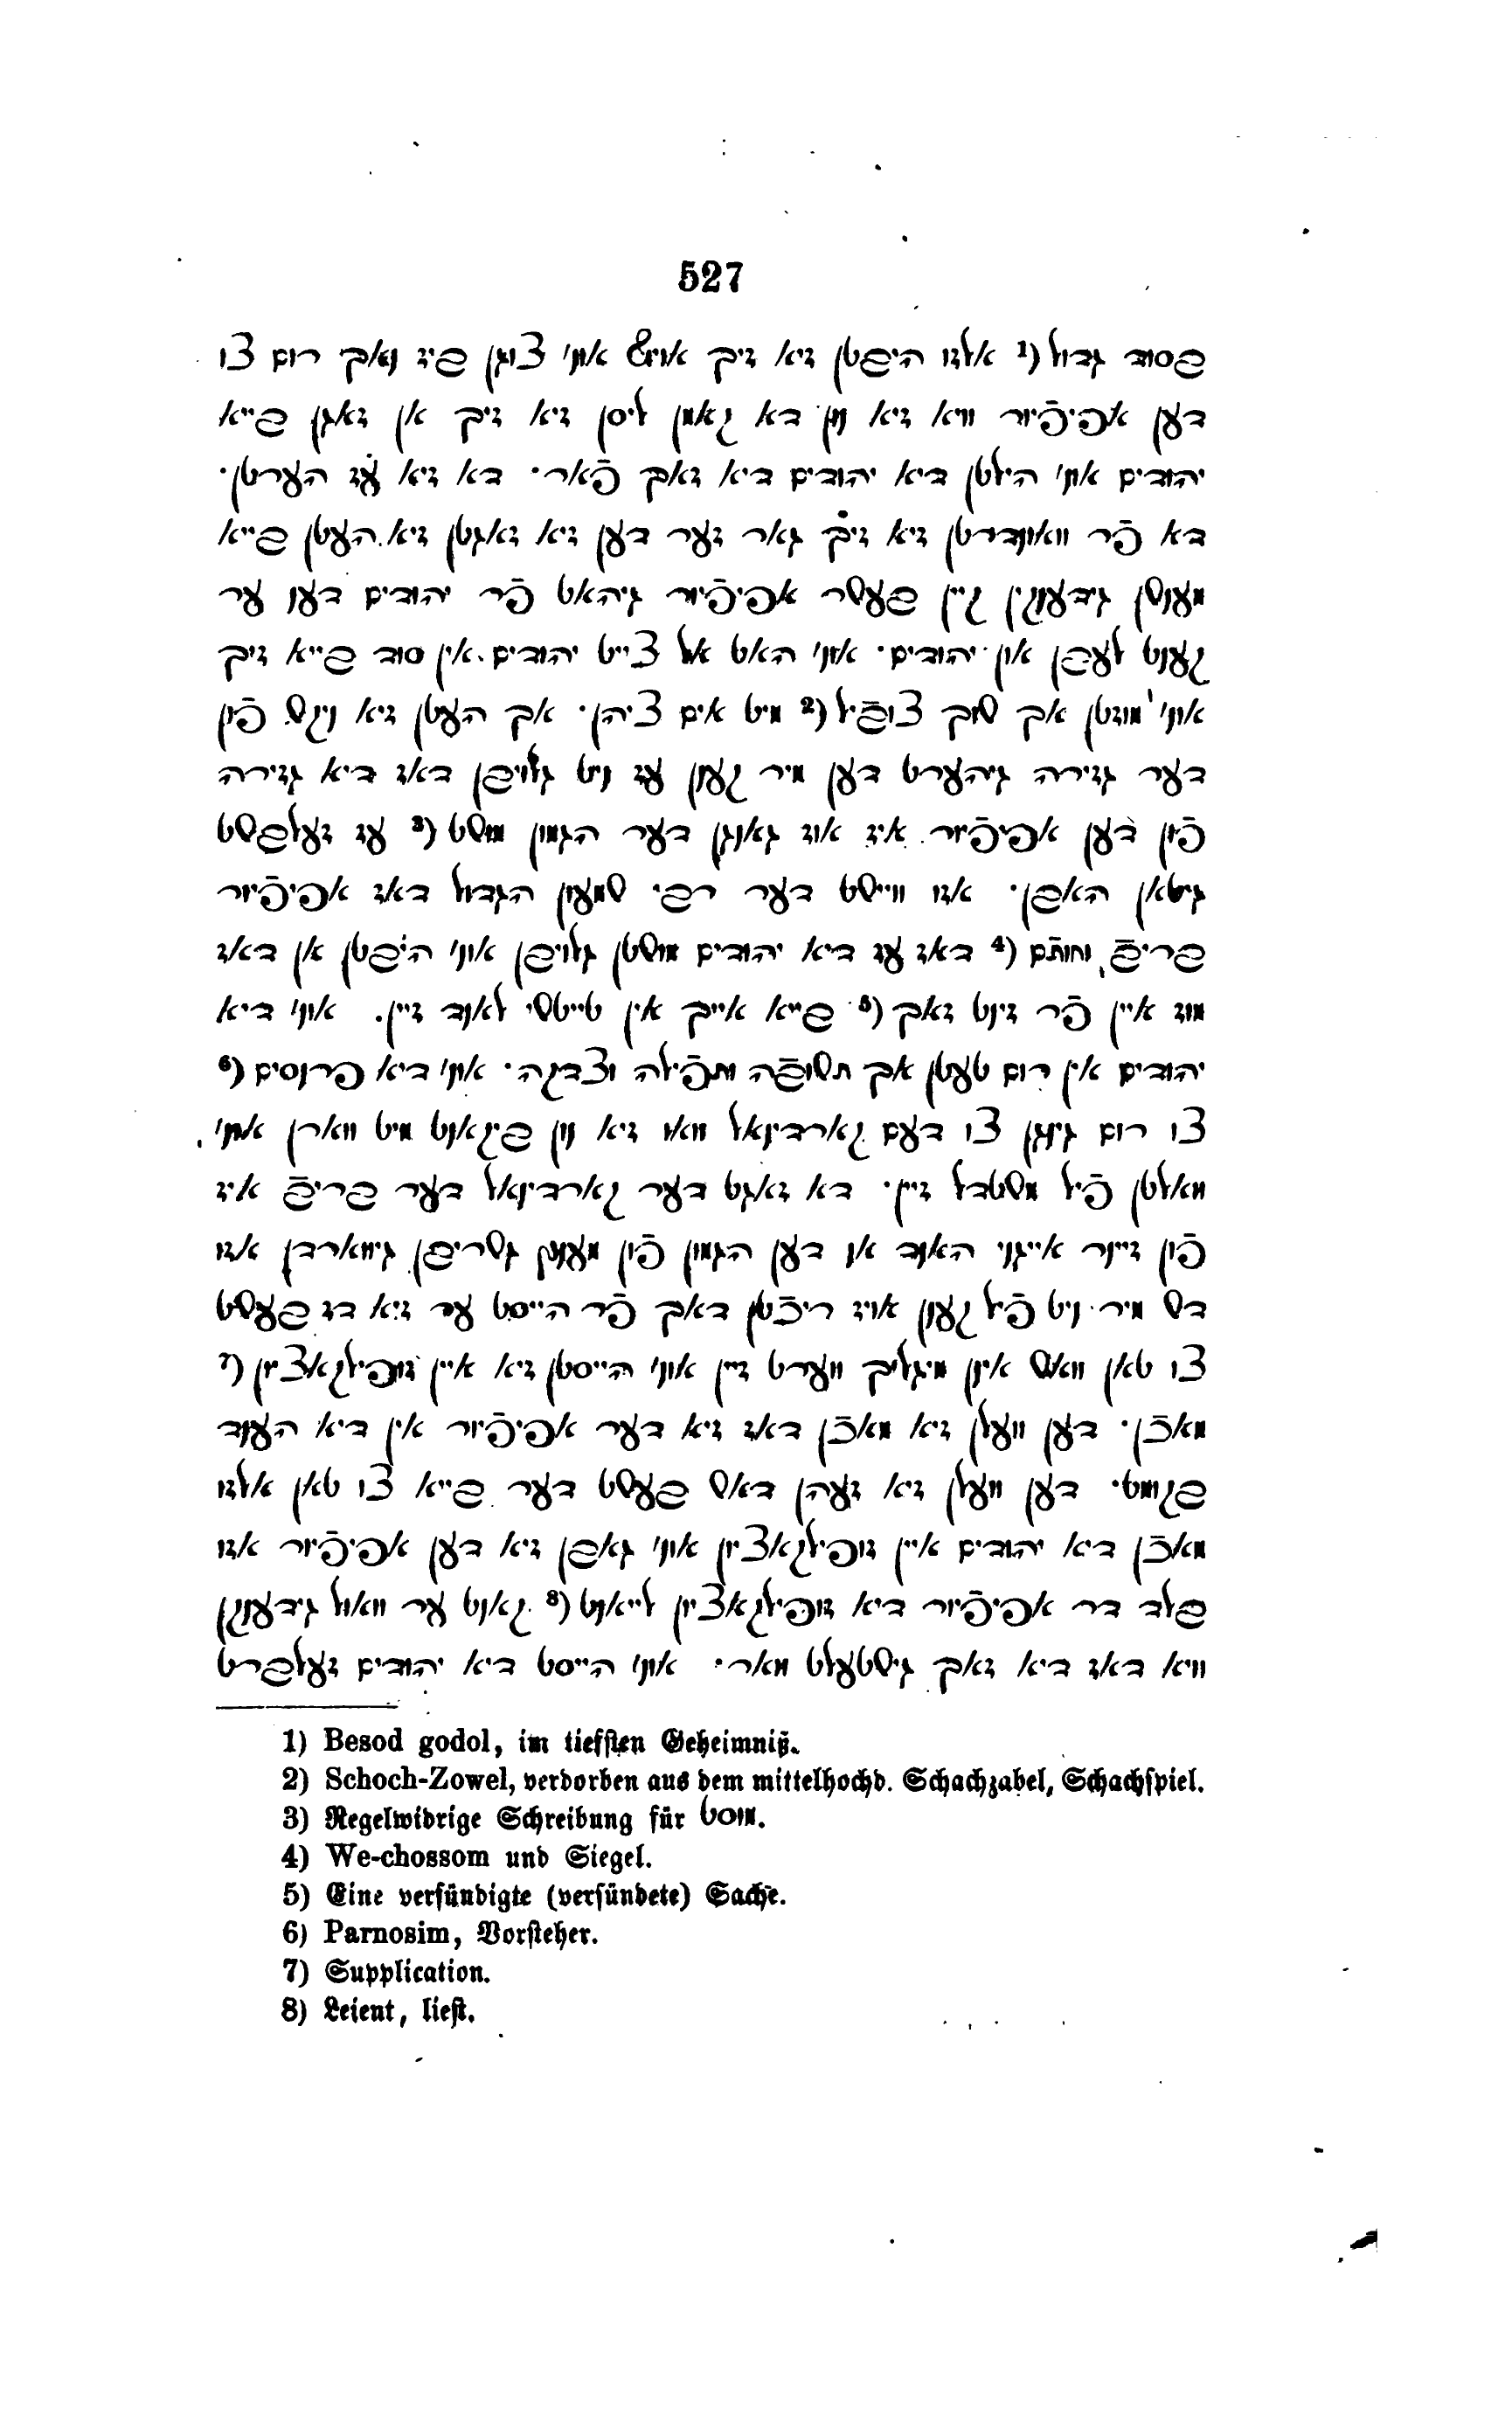 527
בסוד גדול (¹ אלזו היבטן זיא זיך אויש אונ׳ צוגן ביז נאך רום צו
דען אפיפֿיור וויא זיא נון דא קאמן ליסן זיא זיך אן זאגן בייא
יהודים אונ׳ הילטן דיא יהודים דיא זאך פֿאר· דא זיא עֹז הערטן·
דא פֿר וואונדרטן זיא זיך גאר זער דען זיא זאגטן זיא העטן בייא
מענשן גידענקין קיין בעשר אפיפֿיור גיהאט פֿר יהודים דען ער
קענט לעבן און יהודים· אונ׳ האט אל צייט יהודים אין סוד בייא זיך
אונ׳ מוזטן אך שוך צובֿיל (² מיט אים ציהן· אך העטן זיא ניקש פֿון
דער גזירה גיהערט דען מיר קענן עז ניט גלויבן דאז דיא גזירה
פֿון דען אפיפֿיור איז אוז גאנגן דער הגמון מושט (³ עז זעלבשט
גיטאן האבן· אזו ווייסט דער רבי שמעון הגדול דאז אפיפֿיור
בריבֿ וחותֿם (⁴ דאז עז דיא יהודים מושטן גלויבן אונ׳ היֹבטן אן דאז
מוז איין פֿר זינט זאך (⁵ בייא אייך אין טייטשי לאנד זיין. אונ׳ דיא
יהודים אין רום טעטן אך תשובֿה ותפֿילה וצדקה· אונ׳ דיא פרנסים (⁶
צו רום גינגן צו דעם קארדינאל וואו זיא נון ביקאנט מיט ווארן אונ׳
וואלטן פֿיל משטבל זיין· דא זאגט דער קארדינאל דער בריבֿ איז
פֿון זיינר אייגני האנד אן דען הגמון פֿון מענץ גשריבן גיווארדן אזו
דש מיר ניט פֿיל קענן אויז ריכֿטן דאך פֿר הייסט ער זיא דז בעשט
צו טאן וואש אינן מיגליך ווערט זיין אונ׳ הייסטן זיא איין זופילקאציון (⁷
מאכֿן· דען וועלן זיא מאכֿן דאז זיא דער אפיפֿיור אין דיא הענד
בקומט· דען וועלן זיא זעהן דאש בעשט דער בייא צו טאן אלזו
מאכֿן דיא יהודים איין זופילקאציון אונ׳ גאבן זיא דען אפיפֿיור אזו
בלד דר אפיפֿיור דיא זופילקאציון לייאנט (⁸ קאנט ער וואול גידענקן
וויא דאז דיא זאך גישטעלט וואר· אונ׳ הייסט דיא יהודים זעלברט
1) Besod godol, im tiefsten Geheimniß.
2) Schoch-Zowel, verdorben aus dem mittelhochd. Schachzabel, Schachspiel.
3) Regelwidrige Schreibung für מוסט.
4) We-chossom und Siegel.
5) Eine versündigte (versündete) Sache.
6) Parnosim, Vorsteher.
7) Supplication.
8) Leient, liest.